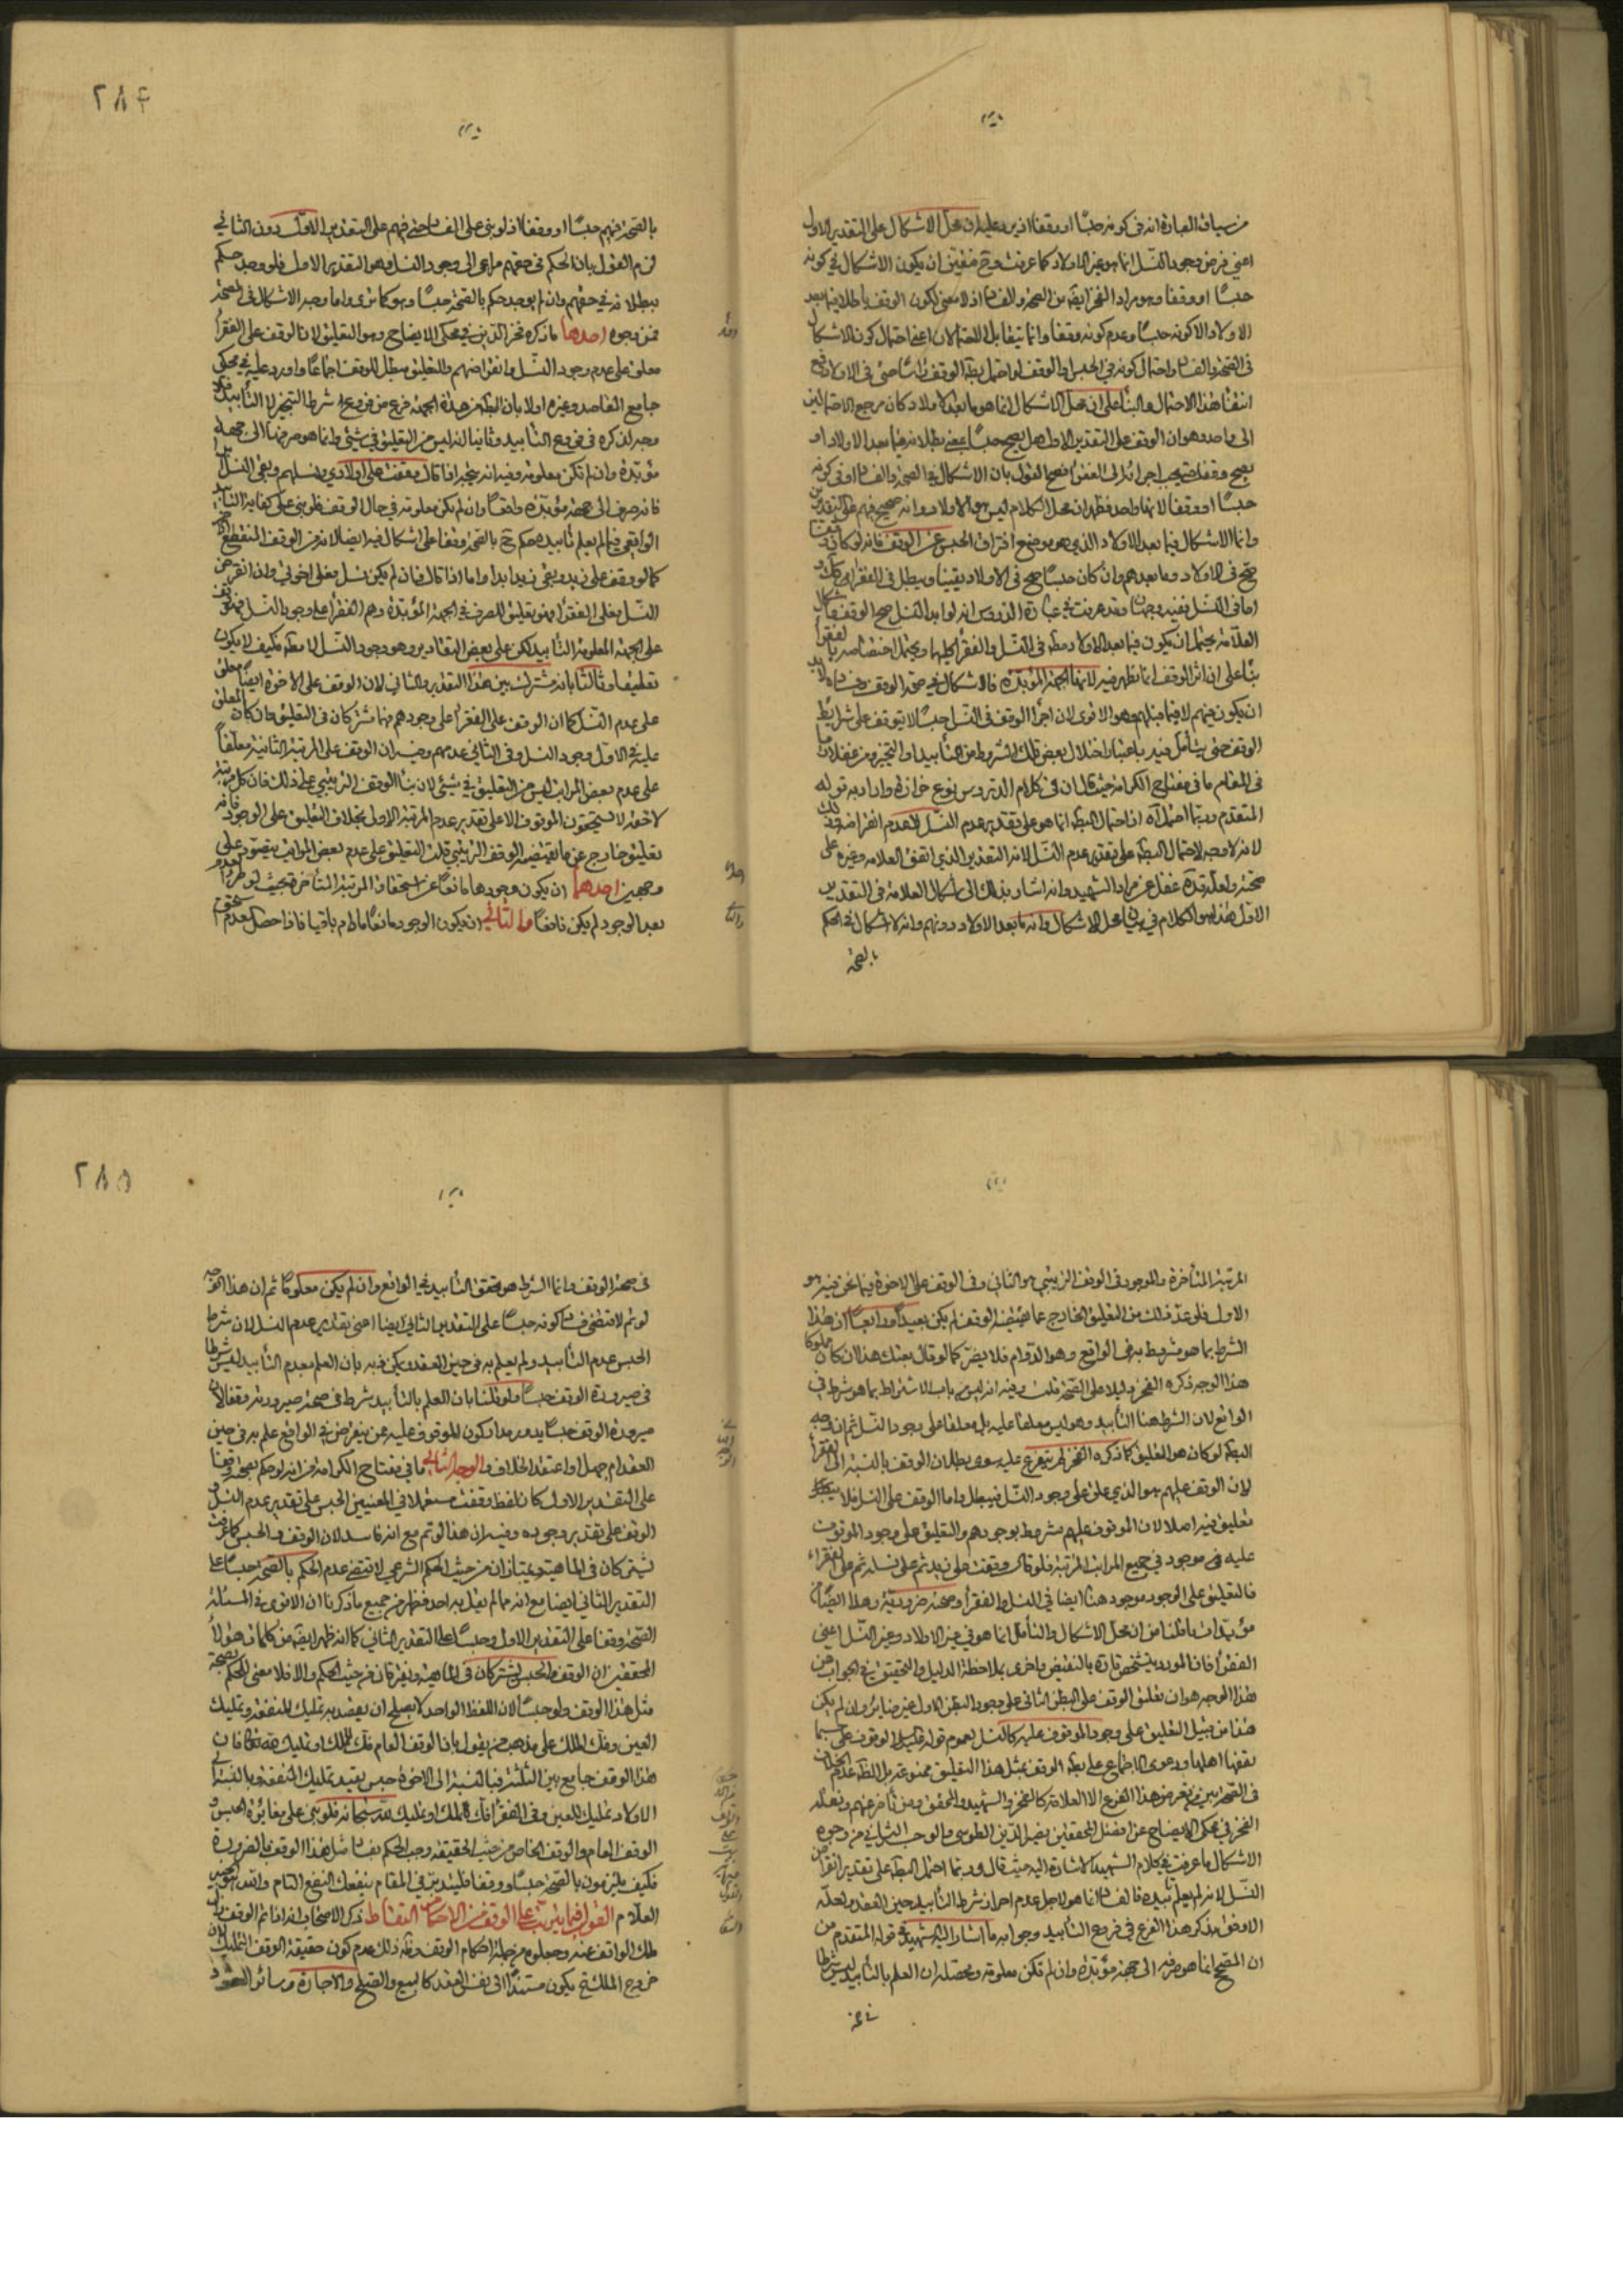 من سياق العبارة انه في كونه حبسًا او وقفًا اذ يرد عليه ان محل الاشكال على التقدير الاول
اعني فرض وجود النسل انما هو غير الاولاد كما عرفت وح فيتعين ان يكون الاشكال في كونه
حبسًا او وقفًا وهو مراد الفخر ايضًا من الصحة والفساد اذ لا معنى لكون الوقف باطلا فيما بعد
الاولاد الا كونه حبسًا وعدم كونه وقفًا وانما يتقابل الاحتمالان اعني احتمال كون الاشكال
في الصحة والفساد واحتمال كونه في الحبس او الوقف لو احتمل بطلان الوقف راسًا حتى في الاولاد ومع
انتفاء هذا الاحتمال والبناء على ان محل الاشكال انما هو ما بعد الاولاد كان مرجع الاحتمالين
الى واحد وهو ان الوقف على التقدير الاول هل يصح حبسًا بمعنى بطلانه فيما بعد الاولاد او
يصح وقفًا حتى يجب اجرائه الى الفقراء فصح القول بان الاشكال في الصحة والفساد او في كونه
حبسًا او وقفًا لانهما واحد فظهر ان محل الكلام ليس هو الاولاد وانه صحيح فيهم على التقديرين
وانما الاشكال فيما بعد الاولاد الذي هو موضع افتراق الحبس عن الوقف فانه لو كان وقفًا
صح في الاولاد وما بعدهم وان كان حبسًا صح في الاولاد يقينًا ويبطل في الفقراء كذلك و
اما في النسل ففيه وجهان وقد عرفت في عبارة الدروس انه لو ابد النسل صح الوقف فاشكال
العلامة يحتمل ان يكون فيما بعد الاولاد مطلقًا في النسل والفقراء كليهما ويحتمل اختصاصه بالفقراء
بناء على ان اثر الوقف انما يظهر فيه لانها الجهة المؤبدة فالاشكال في صحة الوقف وفساده لابد
ان يكون فيهم لا فيما قبلهم وهو الاقوى لان اجراء الوقف في النسل حبسًا لا يتوقف على شرايط
الوقف حتى يتأمل فيه باعتبار اختلال بعض تلك الشروط من التأبيد او التنجيز ومن غفلات ما
في المقام ما في مفتاح الكرامة حيث قال ان في كلام الدروس نوع حزازة واراد به قوله
المتقدم وربما احتمل اه اذ احتمال البطلان انما هو على تقدير عدم النسل لا عدم انقراضه وذلك
لانه لا وجه لاحتمال البطلان على تقدير عدم النسل لانه التقدير الذي اتفق العلامة وغيره على
صحته ولعله قده غفل عن مراد الشهيد وانه اشار بذلك الى اشكال العلامة في التقدير
الاول هذا هو الكلام في بيان محل الاشكال وانه ما بعد الاولاد دونهم وانه لا اشكال في الحكم
بالصحة
٢٨٤
بالصحة فيهم حبسًا او وقفًا اذ لو بنى على الفساد حتى فيهم على التقدير الاول دون الثاني
لزم القول بان الحكم في حقهم مراعى الى وجود النسل وهو التقدير الاول فلو وجد حكم
ببطلانه في حقهم وان لم يوجد حكم بالصحة حبسًا وهو كما ترى واما وجه الاشكال في الصحة
فمن وجوه احدها ما ذكره فخر الدين في محكي الايضاح وهو التعليق لان الوقف على الفقراء
معلق على عدم وجود النسل وانقراضهم والتعليق مبطل للوقف اجماعًا واورد عليه في محكي
جامع المقاصد وغيره اولا بان الظاهر هذه الجهة فرع من فروع شرط التنجيز لا التأبيد فلا
وجه لذكره في فروع التأبيد وثانيا انه ليس من التعليق في شيئ وانما هو صرفها الى جهة
مؤبدة وان لم تكن معلومة وفيه انه يتجه اذا قال وقفت على اولادي ونسلهم وبقي النسل
فانه صرف الى جهة مؤبدة واقعًا وان لم يكن معلومة في حال الوقف فلو بنى على كفاية التأبيد
الواقعي فيما لم يعلم تأبيده حكم ح بالصحة وقفا على اشكال فيه ايضا لانه من الوقف المنقطع الاخر
كما لو وقف على زيد وبقي زيد ابدا واما اذا قال فان لم يكن نسل فعلى اخوتي واذا انقرض
النسل فعلى الفقراء فهو تعليق للصرف في الجهة المؤبدة وهم الفقراء على وجود النسل فهو وقف
على الجهة المعلومة التأبيد لكن على بعض التقادير وهو وجود النسل لا مطلقا فكيف لا يكون
تعليقا وثالثا بانه مشترك بين هذا التقدير والثاني لان الوقف على الاخوة ايضًا معلق
على عدم النسل كما ان الوقف على الفقراء على وجودهم فهما مشتركان في التعليق وان كان المعلق
عليه في الاول وجود النسل وفي الثاني عدمهم وفيه ان الوقف على المرتبة الثانية معلقًا
على عدم بعض المراتب ليس من التعليق في شيئ لان بناء الوقف الترتيبي على ذلك فان كل مرتبة
لاحقة لا يستحقون الموقوف الا على تقدير عدم المرتبة الاولى بخلاف التعليق على الوجود فانه
تعليق خارج عن ما تقتضيه الوقف الترتيبي قلت التعليق على عدم بعض المراتب يتصور على
وجهين احدهما ان يكون وجودها مانعًا عن استحقاق المرتبة المتأخرة بحيث لو طرء العدم
بعد الوجود لم يكن نافعًا والثاني ان يكون الوجود مانعًا ما دام باقيا فاذا حصل العدم استحق
المرتبة المتأخرة والموجود في الوقف الترتيبي هو الثاني وفي الوقف على الاخوة فيما نحن فيه هو
الاول فلو عد ذلك من التعليق الخارج عما يقتضيه الوقف لم يكن بعيدًا ورابعًا ان هذا
الشرط بما هو مشروط به في الواقع وهو الدوام فلا يضر كما لو قال بعتك هذا ان كان مملوكا
هذا الوجه ذكره الفخر دليلا على الصحة قلت وفيه انه ليس من باب الاشتراط بما هو شرط في
الواقع لان الشرط هنا التأبيد وهو ليس معلقا عليه بل معلقا على وجود النسل ثم ان وجه
البطلان لو كان هو التعليق كما ذكره الفخر لم يتفرع عليه سوى بطلان الوقف بالنسبة الى الفقراء
لان الوقف عليهم هو الذي علق على وجود النسل فيبطل واما الوقف على النسل فلا
تعليق فيه اصلا لان الموقوف عليهم مشروط بوجودهم والتعليق على وجود الموقوف
عليه فهو موجود في جميع المراتب المرتبة فلو قال وقفت على زيد ثم على نسله ثم على الفقراء
فالتعليق على الوجود موجود هنا ايضا في النسل والفقراء وصحته ضرورية وهذا ايضًا
مؤيد لما قلنا من ان محل الاشكال والتأمل انما هو في غير الاولاد وغير النسل اعني
الفقراء فان المورد يتشخص تارة بالتنقيص واخرى بملاحظة الدليل والتحقيق في الجواب عن
هذا الوجه هو ان تعليق الوقف على البطن الثاني على وجود البطن الاول غير ضائر وان لم يكن
هذا من قبيل التعليق على وجود الموقوف عليه كالنسل لعموم قوله الوقوف على حسب ما
يقفها اهلها ودعوى الاجماع على بطلان الوقف بمثل هذا التعليق ممنوعة بل الظاهر عدم الخلاف
في الصحة بين من تعرض هذا الفرع الا العلامة كالفخر والشهيد والمحقق ومن تأخر عنهم ونقله
الفخر في محكي الايضاح عن افضل المحققين نصير الدين الطوسي والوجه الثاني من وجوه
الاشكال ما عرفت في كلام الشهيد الاشارة اليه حيث قال وربما احتمل البطلان على تقدير انقراض
النسل لانه لم يعلم تأبيده فالفساد انما هو لاجل عدم احراز شرط التأبيد حين العقد ولعله
الاوفق بذكر هذا الفرع في فروع التأبيد وجوابه ما اشار اليه الشهيد في قوله المتقدم من
ان المصحح انما هو صرفه الى جهة مؤبدة وان لم تكن معلومة ومحصله ان العلم بالتأبيد ليس شرطا
في صحة
٢٨٥
في صحة الوقف وانما الشرط هو تحقق التأبيد في الواقع وان لم يكن معلومًا ثم ان هذا الوجه
لو تم لاقتضى فساد كونه حبسًا على التقدير الثاني ايضا اعني تقدير عدم النسل لان شرط
الحبس عدم التأبيد ولم يعلم به في حين العقد ويمكن ذبه بان العلم بعدم التأبيد ليس شرطا
في صيرورة الوقف حبسًا ولو قلنا بان العلم بالتأبيد شرط في صحة صيرورته وقفا لان
صيرورة الوقف حبسًا يدور مدار كون الموقوف عليه ممن ينقرض في الواقع علم به في حين
العقد ام جهل او اعتقد الخلاف والوجه الثالث ما في مفتاح الكرامة من انه لو حكم بصحته وقفًا
على التقدير الاول كان لفظ وقفت مستعملا في المعنيين الحبس على تقدير عدم النسل و
الوقف على تقدير وجوده وفيه ان هذا لو تم مع انه فاسد لان الوقف والحبس كما عرفت
يشتركان في الماهية ويمتازان من حيث الحكم الشرعي لاقتضى عدم الحكم بالصحة حبسًا على
التقدير الثاني ايضا مع انه مما لم يقل به احد فظهر من جميع ما ذكرنا ان الاقوى في المسئلة
الصحة وقفا على التقدير الاول وحبسًا على التقدير الثاني كما انه ظهر ايضًا من كلمات هؤلاء
المحققين ان الوقف والحبس يشتركان في الماهية ويفترقان من حيث الحكم والا فلا معنى للحكم بصحة
مثل هذا الوقف ولو حبسًا لان اللفظ الواحد لا يصلح ان يقصد به تمليك المنفعة وتمليك
العين وفك الملك على مذهب من يقول بان الوقف العام فك للملك او تمليك لله تعالى فان
هذا الوقف جامع بين الثلثة فبالنسبة الى الاخوة حبس يفيد تمليك المنفعة وبالنسبة الى
الاولاد تمليك للعين وفي الفقراء فك للملك او تمليك لله سبحانه فلو بنى على مغايرة الحبس و
الوقف العام والوقف الخاص من حيث الحقيقة وجب الحكم بفساد مثل هذا الوقف بالضرورة
فكيف يلتزمون بالصحة حبسًا ووقفا فليتدبر في المقام ينفعك النفع التام والله الخبير
العلام القول فيما يترتب على الوقف من الاحكام التقاط ذكر الاصحاب انه اذا تم الوقف زال
ملك الواقف عنه وجعلوه من جملة احكام الوقف وظاهر ذلك عدم كون حقيقة الوقف التمليك لان
خروج الملك ح يكون مستندًا الى نفس العقد كالبيع والصلح والاجارة وسائر العقود